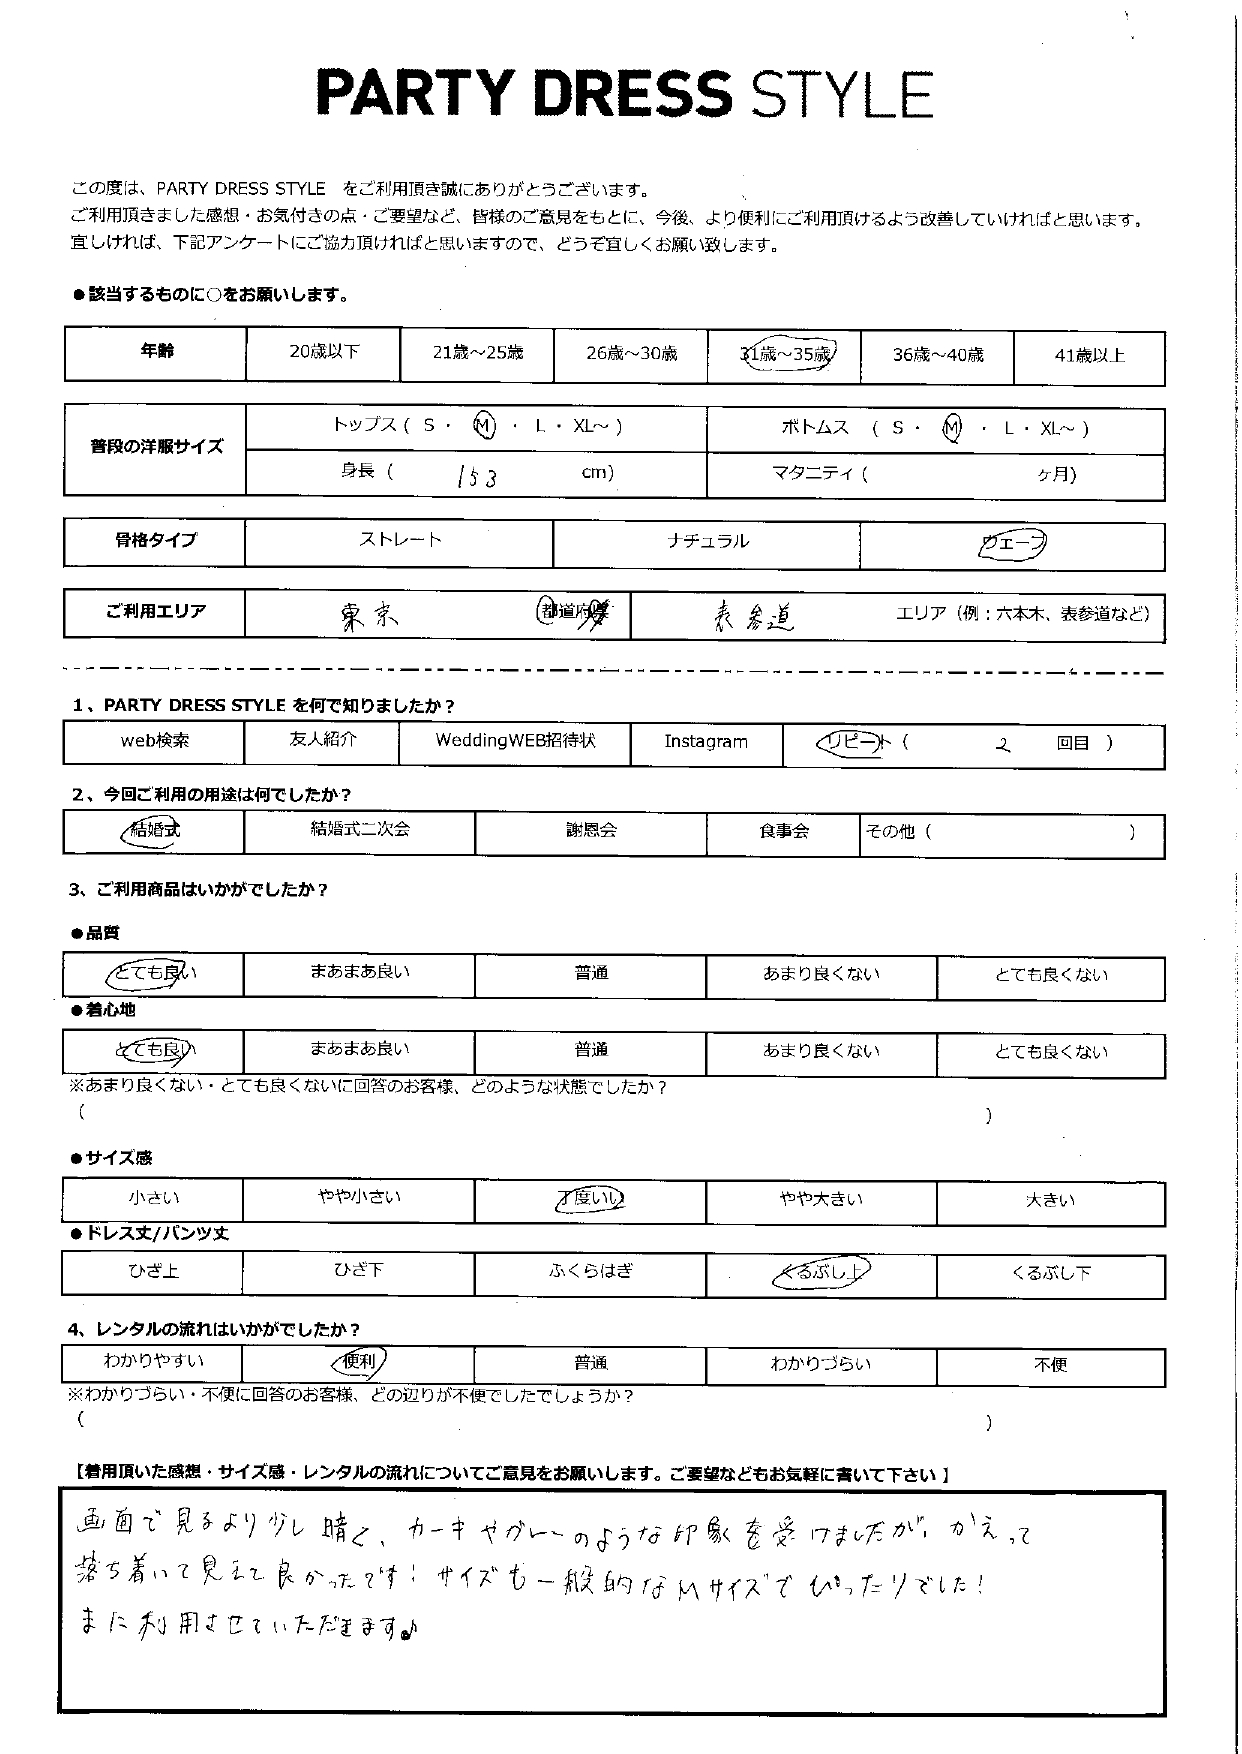 PARTY DRESS STYLE
この度は、PARTY DRESS STYLE をご利用頂き誠にありがとうございます。
ご利用頂きました感想・お気付きの点・ご要望など、皆様のご意見をもとに、今後、より便利にご利用頂けるよう改善していければと思います。
宜しければ、下記アンケートにご協力頂ければと思いますので、どうぞ宜しくお願い致します。
●該当するものに○をお願いします。
年齢 20歳以下 21歳～25歳 26歳～30歳 31歳～35歳 36歳～40歳 41歳以上
普段の洋服サイズ トップス ( S ・ M ・ L ・ XL～ ) ボトムス ( S ・ M ・ L ・ XL～ )
身長 ( 153 cm) マタニティ ( ヶ月)
骨格タイプ ストレート ナチュラル ウェーブ
ご利用エリア 東京 都道府県 表参道 エリア（例：六本木、表参道など）
1、PARTY DRESS STYLE を何で知りましたか？
web検索 友人紹介 WeddingWEB招待状 Instagram リピート ( 2 回目 )
2、今回ご利用の用途は何でしたか？
結婚式 結婚式二次会 謝恩会 食事会 その他 ( )
3、ご利用商品はいかがでしたか？
●品質
とても良い まあまあ良い 普通 あまり良くない とても良くない
●着心地
とても良い まあまあ良い 普通 あまり良くない とても良くない
※あまり良くない・とても良くないに回答のお客様、どのような状態でしたか？
( )
●サイズ感
小さい やや小さい 丁度いい やや大きい 大きい
●ドレス丈/パンツ丈
ひざ上 ひざ下 ふくらはぎ くるぶし上 くるぶし下
4、レンタルの流れはいかがでしたか？
わかりやすい 便利 普通 わかりづらい 不便
※わかりづらい・不便に回答のお客様、どの辺りが不便でしたでしょうか？
( )
【着用頂いた感想・サイズ感・レンタルの流れについてご意見をお願いします。ご要望などもお気軽に書いて下さい】
画面で見るより少し暗く、カーキやグレーのような印象を受けましたが、かえって
落ち着いて見えて良かったです！サイズも一般的なMサイズでぴったりでした！
また利用させていただきます♪